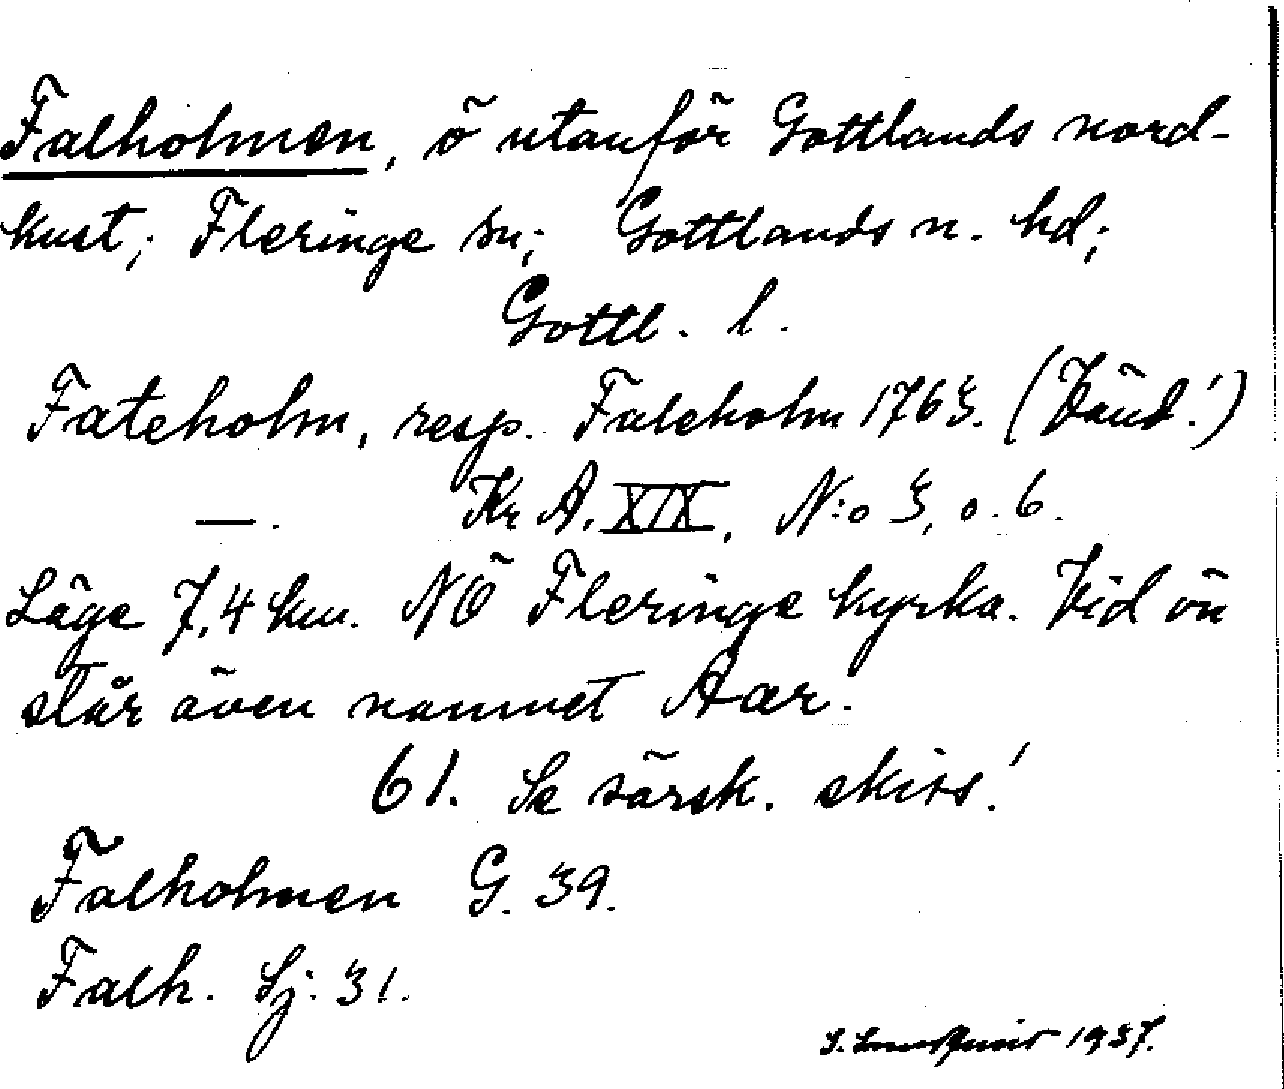 Falholmen, ö utanför Gottlands nord-
kust; Fleringe sn; Gottlands n. hd;
Gottl. l.
Fateholm, resp. Faleholm 1763. (Vänd!)
—. Kr A. XIX, N:o 3, o. 6.
Läge 7,4 km. NÖ Fleringe kyrka. Vid ön
står även namnet Aar.
61. Se särsk. skiss!
Falholmen G. 39.
Falh. Sj. 31.
1937.